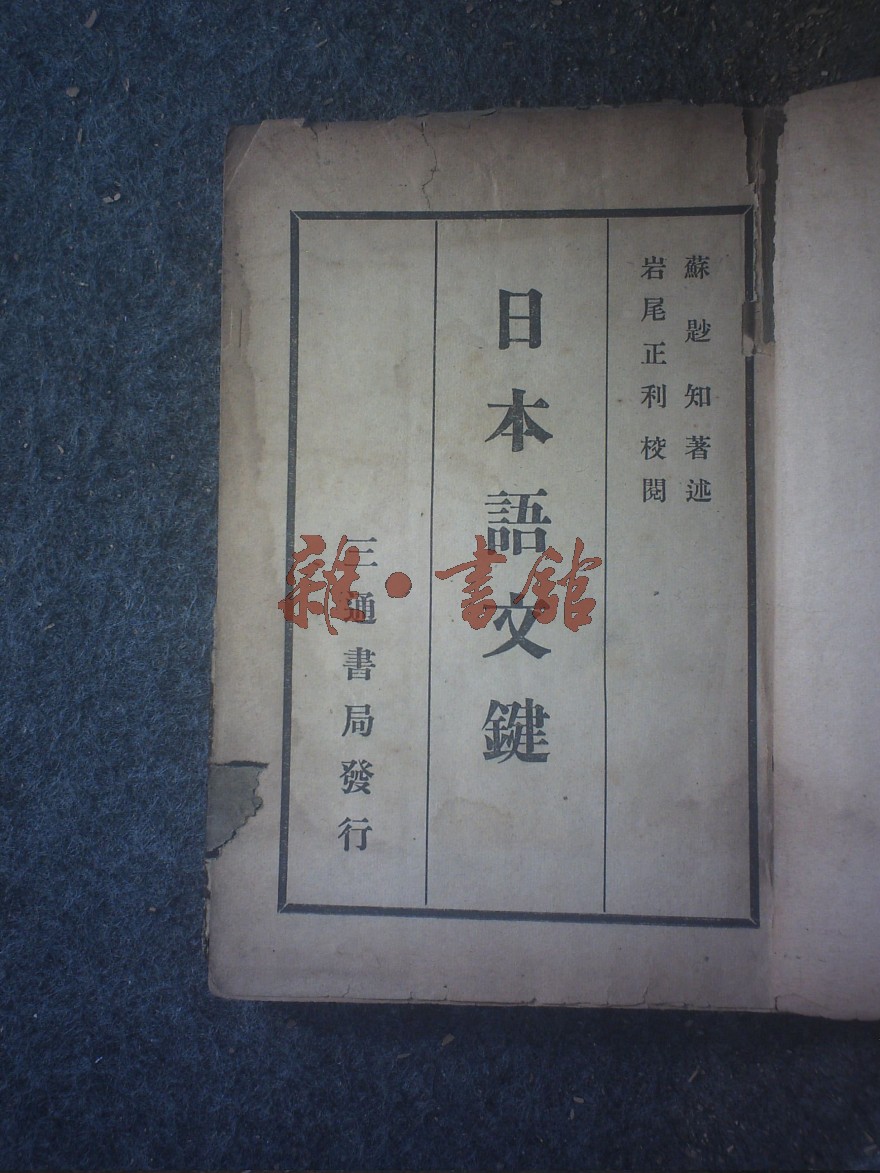 蘇尟知著述
岩尾正利校閱
日本語文鍵
三通書局發行
雜·書館